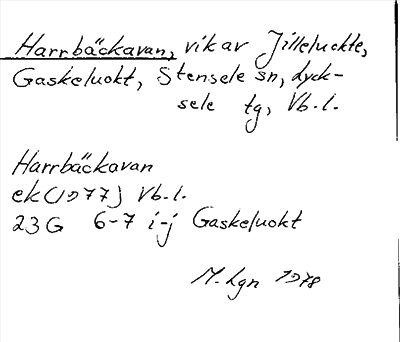 Harrbäckavan, vik av Jilleluokte,
Gaskeluokt, Stensele sn, Lyck-
sele tg, Vb.l.
Harrbäckavan
ek (1977) Vb.l.
23G 6-7 i-j Gaskeluokt
M. Lgn 1978